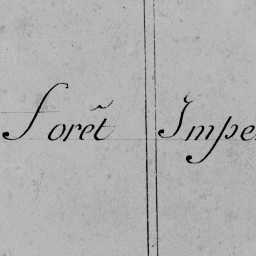 Forêt Impe